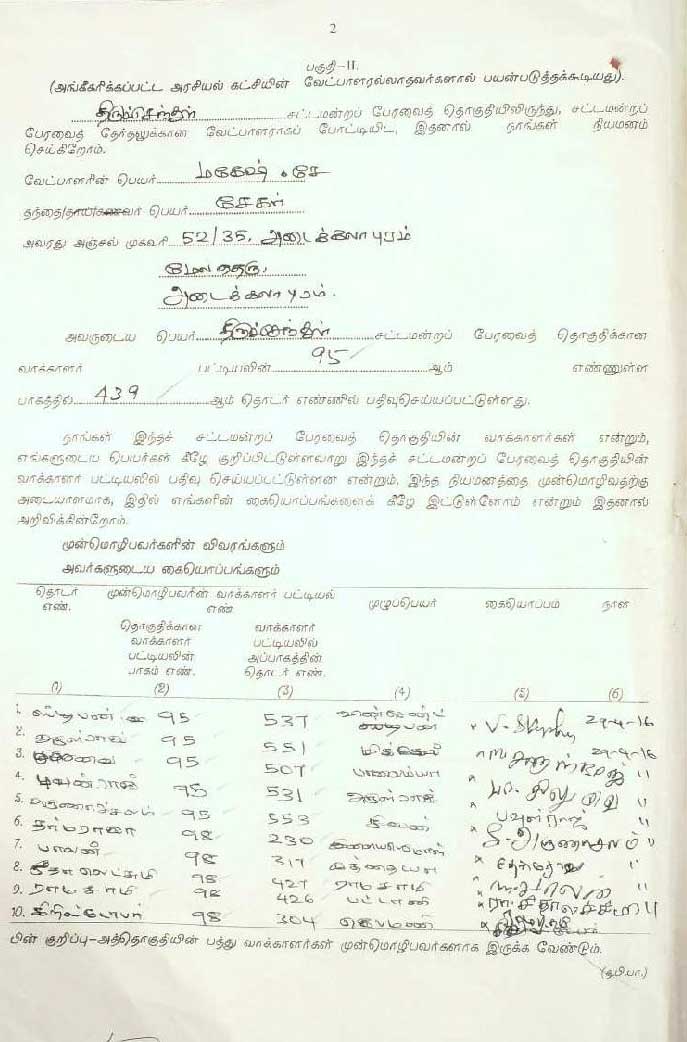 2
பகுதி-II.
(அங்கீகரிக்கப்பட்ட அரசியல் கட்சியின் வேட்பாளரல்லாதவர்களால் பயன்படுத்தக்கூடியது).
திருச்செந்தூர் சட்டமன்றப் பேரவைத் தொகுதியிலிருந்து, சட்டமன்றப்
பேரவைத் தேர்தலுக்கான வேட்பாளராகப் போட்டியிட, இதனால் நாங்கள் நியமனம்
செய்கிறோம்.
வேட்பாளரின் பெயர் மகேஷ் . சே
தந்தை/தாய்/கணவர் பெயர் சேகர்
அவரது அஞ்சல் முகவரி 52/35, அடைக்கலாபுரம்
மேலதெரு,
அடைக்கலாபுரம்.
அவருடைய பெயர் திருச்செந்தூர் சட்டமன்றப் பேரவைத் தொகுதிக்கான
வாக்காளர் பட்டியலின் 95 ஆம் எண்ணுள்ள
பாகத்தில் 439 ஆம் தொடர் எண்ணில் பதிவுசெய்யப்பட்டுள்ளது.
நாங்கள் இந்தச் சட்டமன்றப் பேரவைத் தொகுதியின் வாக்காளர்கள் என்றும்,
எங்களுடைய பெயர்கள் கீழே குறிப்பிட்டுள்ளவாறு இந்தச் சட்டமன்றப் பேரவைத் தொகுதியின்
வாக்காளர் பட்டியலில் பதிவு செய்யப்பட்டுள்ளன என்றும், இந்த நியமனத்தை முன்மொழிவதற்கு
அடையாளமாக, இதில் எங்களின் கையொப்பங்களைக் கீழே இட்டுள்ளோம் என்றும் இதனால்
அறிவிக்கின்றோம்.
முன்மொழிபவர்களின் விவரங்களும்
அவர்களுடைய கையொப்பங்களும்
தொடர் எண். முன்மொழிபவரின் வாக்காளர் பட்டியல் எண் முழுப்பெயர் கையொப்பம் நாள்
தொகுதிக்கான வாக்காளர் பட்டியலின் பாகம் எண். வாக்காளர் பட்டியலில் அப்பாகத்தின் தொடர் எண்.
(1) (2) (3) (4) (5) (6)
1. 95 537 29-4-16
2. 95 551 29-4-16
3. 95 507 "
4. 95 531 அருள்ராஜ் "
5. 95 553 "
6. தர்மராஜா 98 230
7. பவானி 98 317 "
8. 98 427 ராமசாமி
9. ராமசாமி 98 426 பட்டாணி
10. 98 304
பின் குறிப்பு-அத்தொகுதியின் பத்து வாக்காளர்கள் முன்மொழிபவர்களாக இருக்க வேண்டும்.
(கூ.பி.பா.)